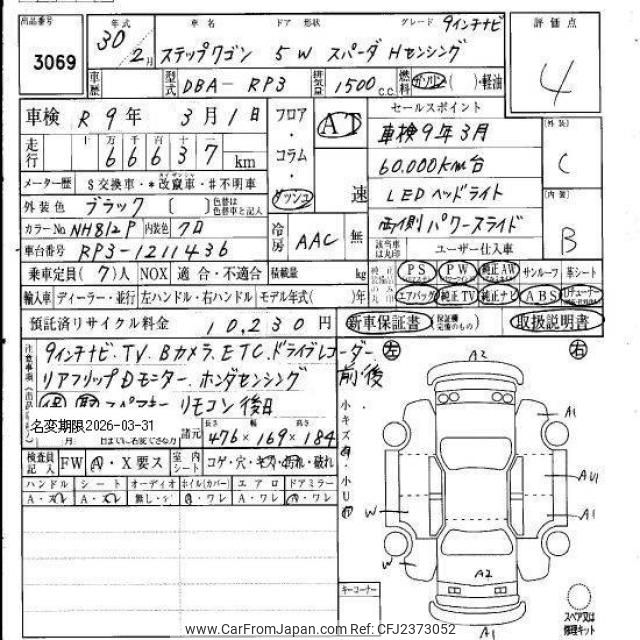 出品番号 年式 車名 ドア 形状 グレード 9インチナビ 評価点
3069 30 2月 ステップワゴン 5W スパーダ Hセンシング 4
車歴 型式 DBA- RP3 排気量 1500 c.c. 燃料 ガソリン ( )・軽油
車検 R 9年 3月 1日 フロア・コラム・ダッシュ AT 速 セールスポイント
車検9年3月 外装 C
走行 十 万 千 百 十 一
6 6 6 3 7 km
60.000km台
メーター歴 $交換車・*改竄車・#不明車
LEDヘッドライト 内装
外装色 ブラック 〔 〕 色替は色替車と記入
両側パワースライド B
カラーNo NH812P 内装色 クロ 冷房 AAC 無
該当車は丸印 ユーザー仕入車
車台番号 RP3-1211436
乗車定員 (7)人 NOX 適合・不適合 積載量 kg PS PW 純正AW サンルーフ 革シート
輸入車 ディーラー・並行 左ハンドル・右ハンドル モデル年式( )年 エアバッグ 純正TV 純正ナビ ABS
預託済リサイクル料金 10,230円 新車保証書 (保証欄完備のもの) 取扱説明書
注意事項 9インチナビ.TV.Bカメラ.ETC.ドライブレコーダー前後
リアフリップDモニター.ホンダセンシング
スペアキー リモコン後日
名変期限2026-03-31
諸元 長さ 幅 高さ
476×169×184
検査員記入 FW A・X要ス 室内 シート コゲ・穴・キズ・汚れ・破れ
ハンドル シート オーディオ ホイル(カバー) エアロ ドアミラー
A・スレ A・スレ 無し A・ワレ A・ワレ A・ワレ
左 右
小キズ 小U
A2
A1
AU1
A1
W
W
A2
A1
キーコーナー
スペア又は
修理キット
www.CarFromJapan.com Ref: CFJ2373052